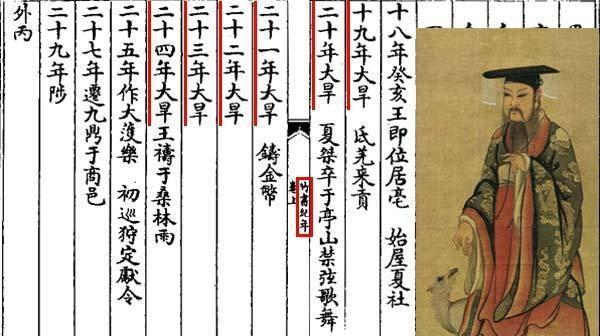 十八年癸亥王即位居亳 始屋夏社
十九年大旱 氐羌来貢
二十年大旱 夏桀卒于亭山禁弦歌舞
竹書紀年
卷上
二十一年大旱 鑄金幣
二十二年大旱
二十三年大旱
二十四年大旱王禱于桑林雨
二十五年作大濩樂 初巡狩定獻令
二十七年遷九鼎于商邑
二十九年陟
外丙